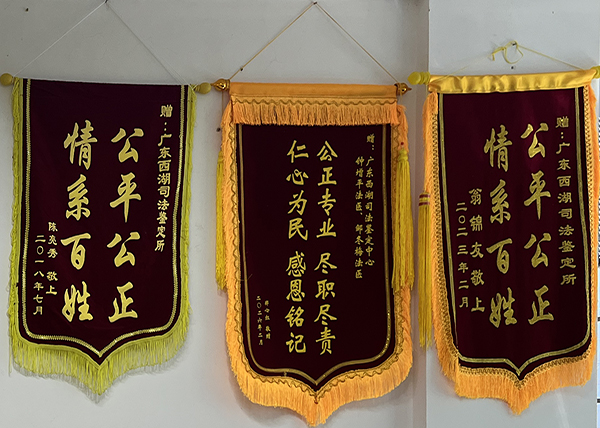 赠：广东西湖司法鉴定所
公平公正
情系百姓
陈炎秀 敬上
二〇一八年七月
赠：广东西湖司法鉴定中心
钟增平法医、邵冬梅法医
公正专业 尽职尽责
仁心为民 感恩铭记
敬赠
二〇二六年二月
赠：广东西湖司法鉴定所
公平公正
情系百姓
翁锦友敬上
二〇二三年二月